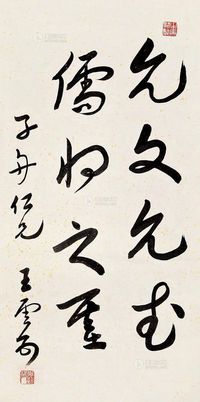 允文允武
儒將之
子舟仁兄
王雲五